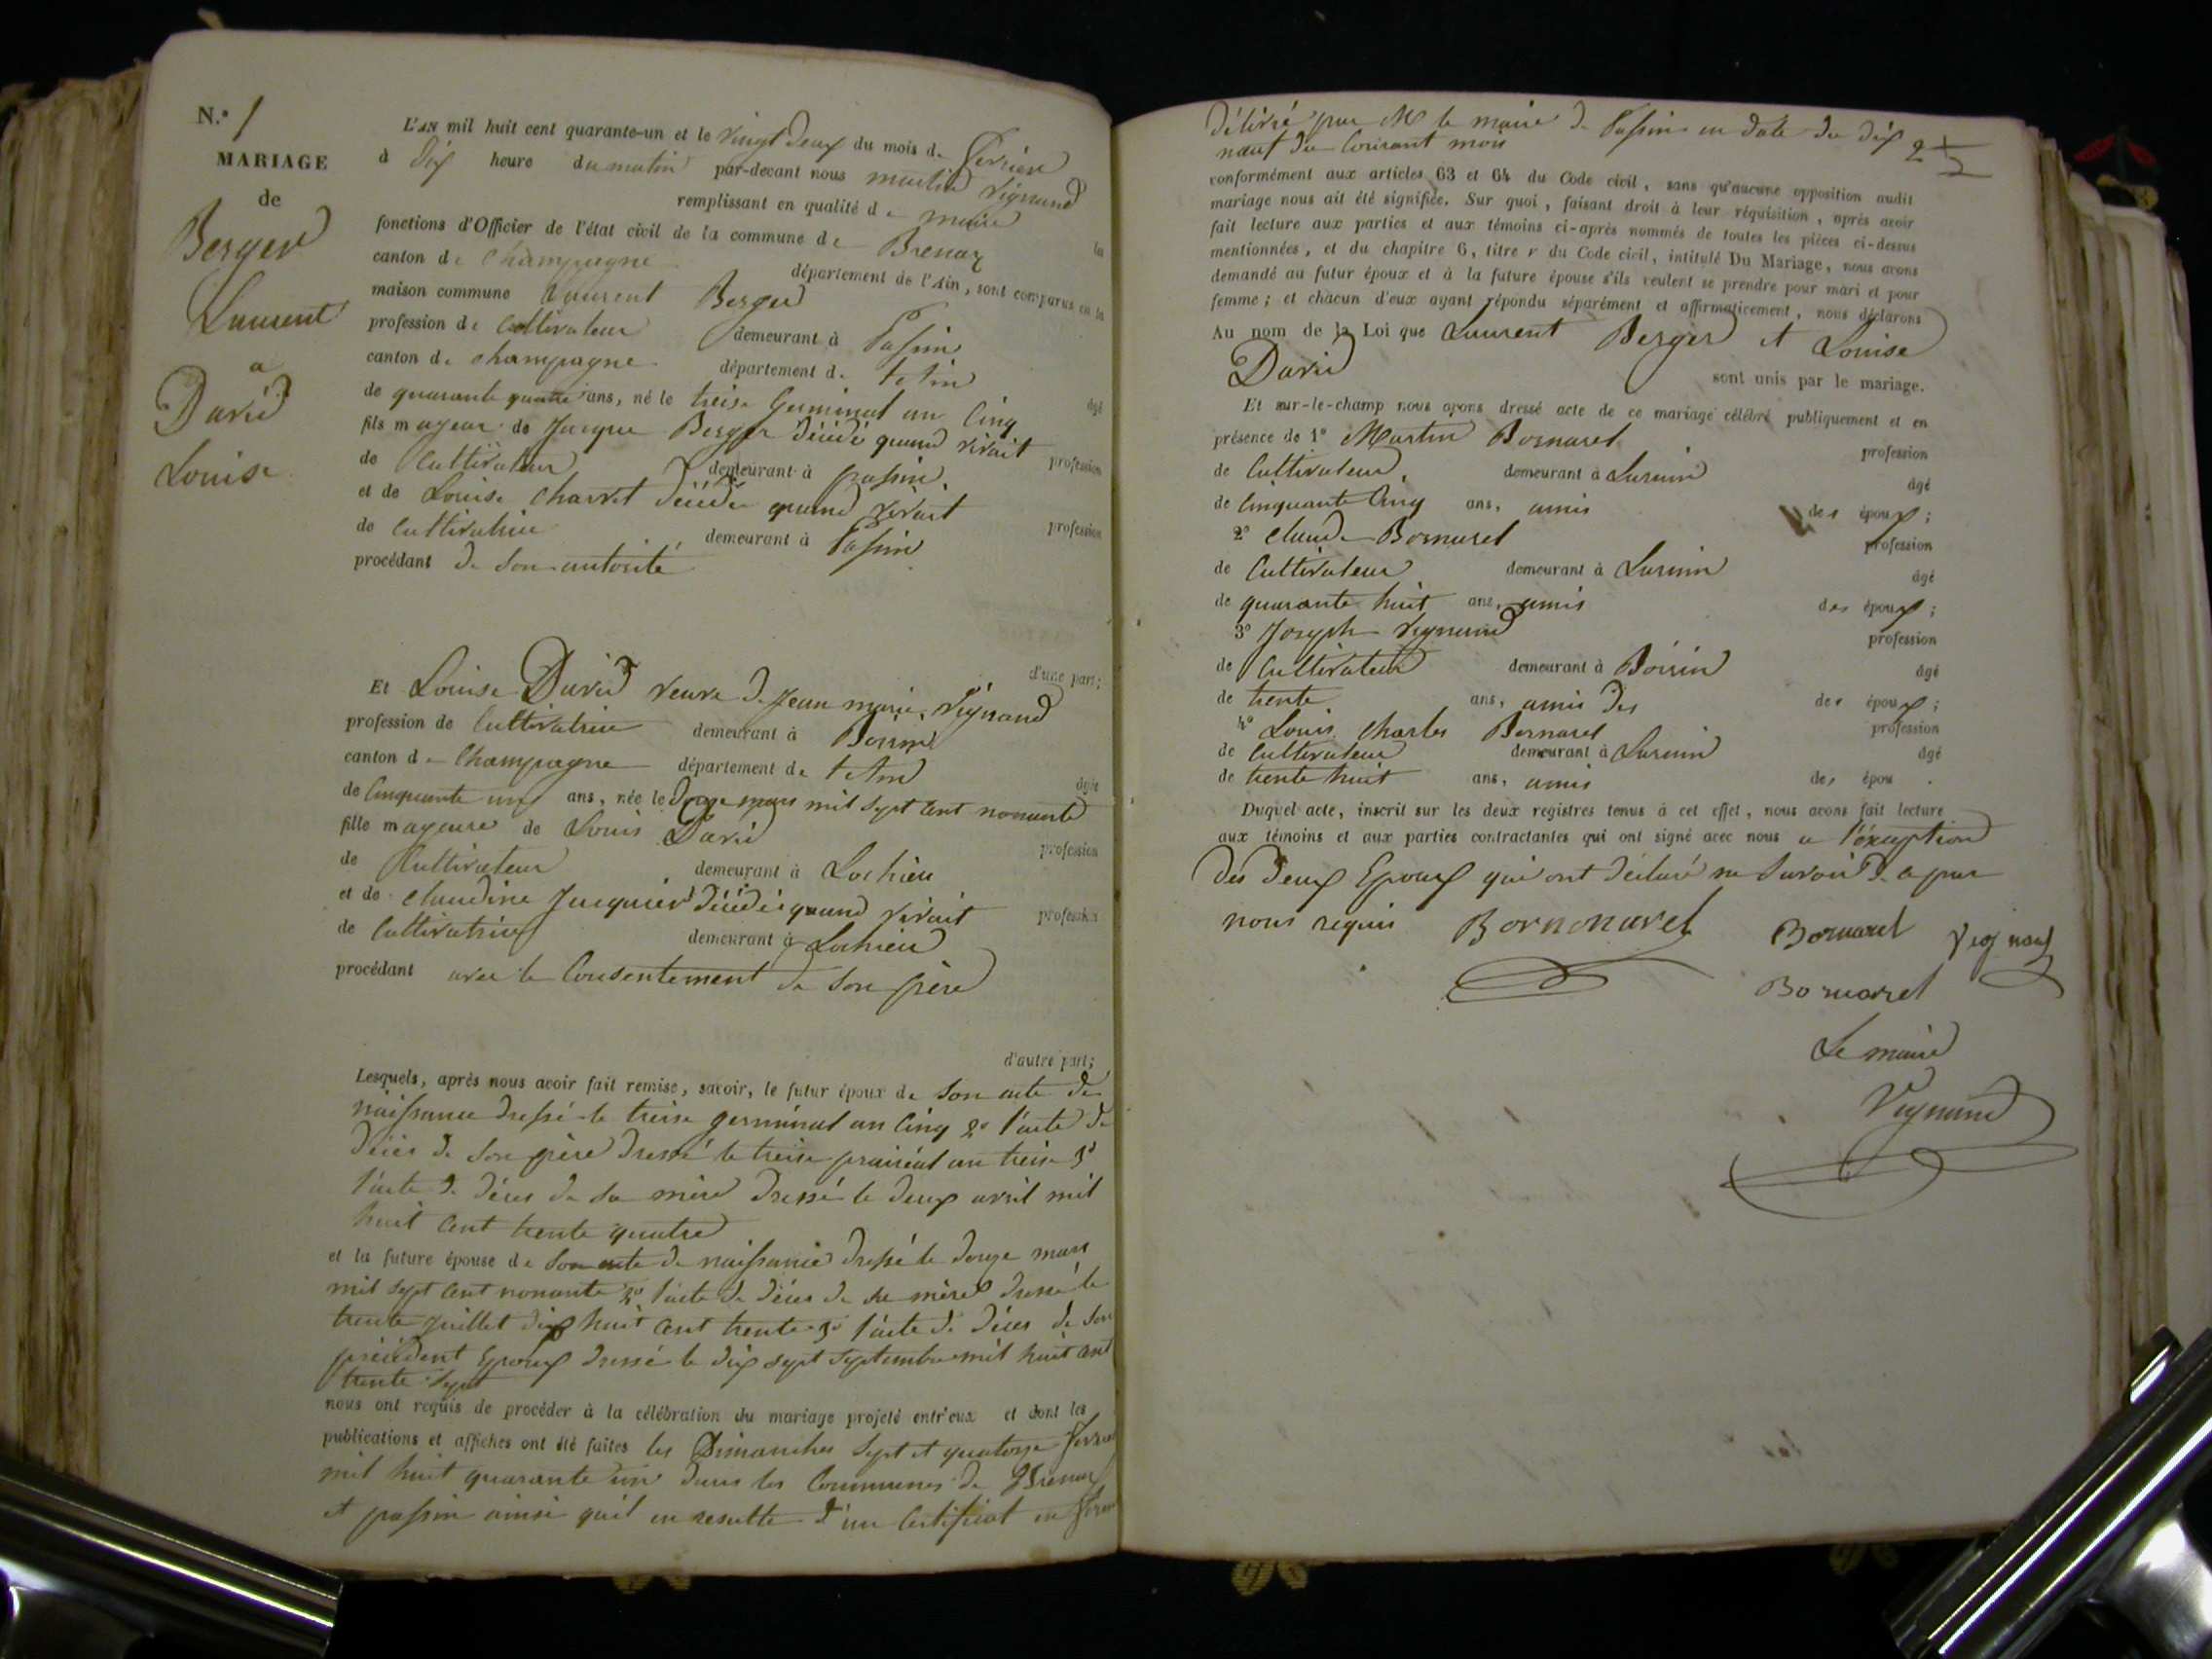 N.° 1
MARIAGE
de
Berger
Laurent
a
David
Louise
L'AN mil huit cent quarante-un et le vingt deux du mois de fevrier
à dix heure du matin par-devant nous martin Vignand
remplissant en qualité de maire la
fonctions d'Officier de l'état civil de la commune de Brenaz
canton de Champagne département de l'Ain, sont comparus en la
maison commune Laurent Berger
profession de Cultivateur demeurant à Passin
canton de champagne département de l'Ain âgé
de quarante quatre ans, né le treise Germinal an Cinq
fils mageur de Jacque Berger décédé quand vivait profession
de Cultivateur demeurant à passin
et de Louise Charvet décédée quand vivait profession
de Cultivatrice demeurant à Passin
procédant de Son autorité
d'une part;
Et Louise David veuve de Jean marie Vignand
profession de Cultivatrice demeurant à Boirin
canton de Champagne département de l'Ain âgée
de Cinquante un ans, née le Douze mars mil sept cent nonante
fille mageure de Louis David profession
de Cultivateur demeurant à Lochieu
et de claudine Juquier décédée quand vivait profession
de Cultivatrice demeurant à Lochieu
procédant avec le Consentement de Son père
d'autre part;
Lesquels, après nous avoir fait remise, savoir, le futur époux de Son acte de
naissance dressé le treise germinal an Cinq 2° l'acte de
décès de Son père dressé le treise prairéal an treise 3°
l'acte de décès de Sa mère dressé le deux avril mil
huit Cent trente quatre
et la future épouse de Son acte de naissance dressé le douze mars
mil sept Cent nonante 2° l'acte de décès de Sa mère dressé le
trente Juillet dix huit cent trente 3° l'acte de décès de Son
précédent Epoux dressé le dix sept Septembre mil huit cent
trente Sept
nous ont requis de procéder à la célébration du mariage projeté entr'eux et dont les
publications et affiches ont été faites les Dimanches Sept et quatorze fevrier
mil huit quarante un dans les Communes de Brenaz
et passin ainsi quil en resulte d'un Certificat en
délivré par Mr le maire de Passin en date du dix
neuf du Courant mois
conformément aux articles 63 et 64 du Code civil, sans qu'aucune opposition audit
mariage nous ait été signifiée. Sur quoi, faisant droit à leur réquisition, après avoir
fait lecture aux parties et aux témoins ci-après nommés de toutes les pièces ci-dessus
mentionnées, et du chapitre 6, titre v du Code civil, intitulé Du Mariage, nous avons
demandé au futur époux et à la future épouse s'ils veulent se prendre pour mari et pour
femme; et chacun d'eux ayant répondu séparément et affirmativement, nous déclarons
Au nom de la Loi que Laurent Berger et Louise
David sont unis par le mariage.
Et sur-le-champ nous avons dressé acte de ce mariage célébré publiquement et en
présence de 1° Martin Bornarel profession
de Cultivateur demeurant à Luminin âgé
de Cinquante Cinq ans, amis des époux;
2° Claude Bornarel profession
de Cultivateur demeurant à âgé
de quarante huit ans, amis des époux;
3° Joseph Vignand profession
de Cultivateur demeurant à Boirin âgé
de trente ans, amis des des époux;
4° Louis Charles Bornarel profession
de Cultivateur demeurant à âgé
de trente huit ans, amis des épou .
Duquel acte, inscrit sur les deux registres tenus à cet effet, nous avons fait lecture
aux témoins et aux parties contractantes qui ont signé avec nous a l'éxception
des deux Epoux qui ont déclaré ne Savoir de a par
nous requis Bornonarel Bornarel
Bornarel
Le maire
Vignand